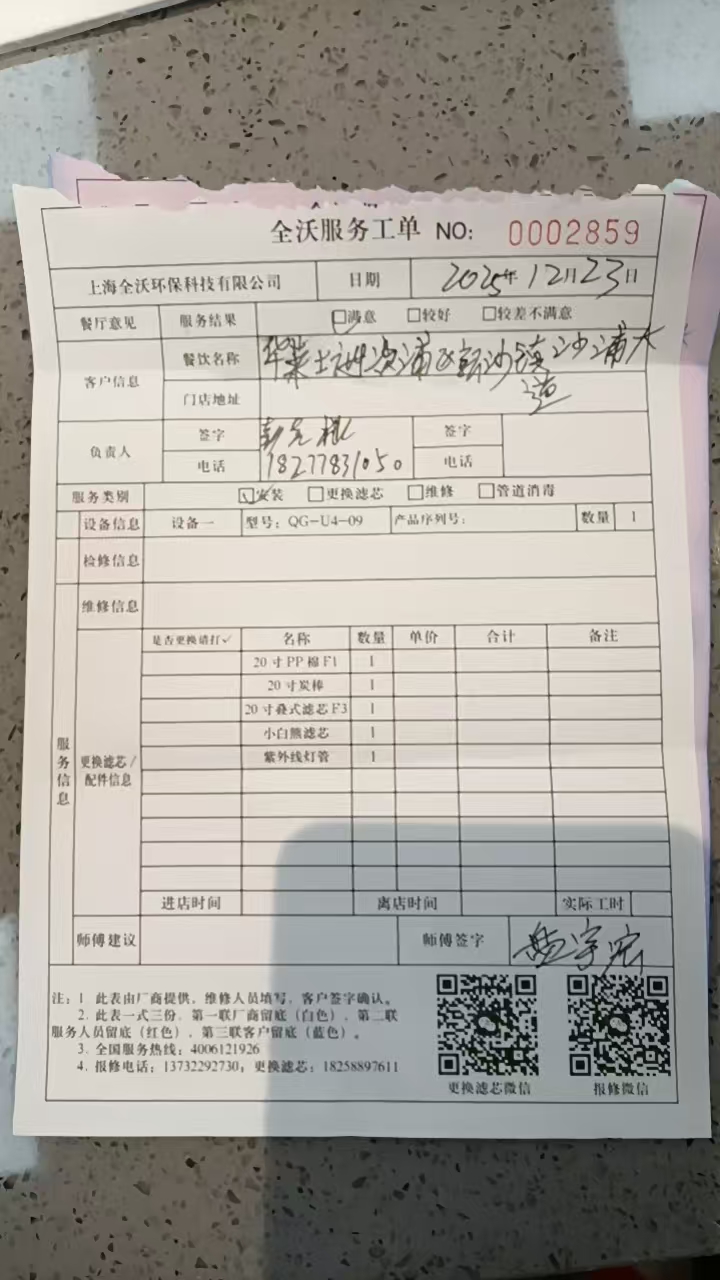 全沃服务工单 NO: 0002859
上海全沃环保科技有限公司 日期 2025年12月23日
餐厅意见 服务结果 满意 较好 较差不满意
客户信息 餐饮名称 华莱士 沙浦大
门店地址 道
负责人 签字 签字
电话 18277831050 电话
服务类别 安装 更换滤芯 维修 管道消毒
设备信息 设备一 型号: QG-U4-09 产品序列号: 数量 1
检修信息
维修信息
服务信息
更换滤芯/配件信息
是否更换请打✓ 名称 数量 单价 合计 备注
20寸PP棉F1 1
20寸炭棒 1
20寸叠式滤芯F3 1
小白熊滤芯 1
紫外线灯管 1
进店时间 离店时间 实际工时
师傅建议 师傅签字 孟宇宏
注: 1 此表由厂商提供、维修人员填写、客户签字确认。
2. 此表一式三份、第一联厂商留底(白色)、第二联
服务人员留底(红色)、第三联客户留底(蓝色)。
3. 全国服务热线: 4006121926
4. 报修电话: 13732292730; 更换滤芯: 18258897611
更换滤芯微信 报修微信